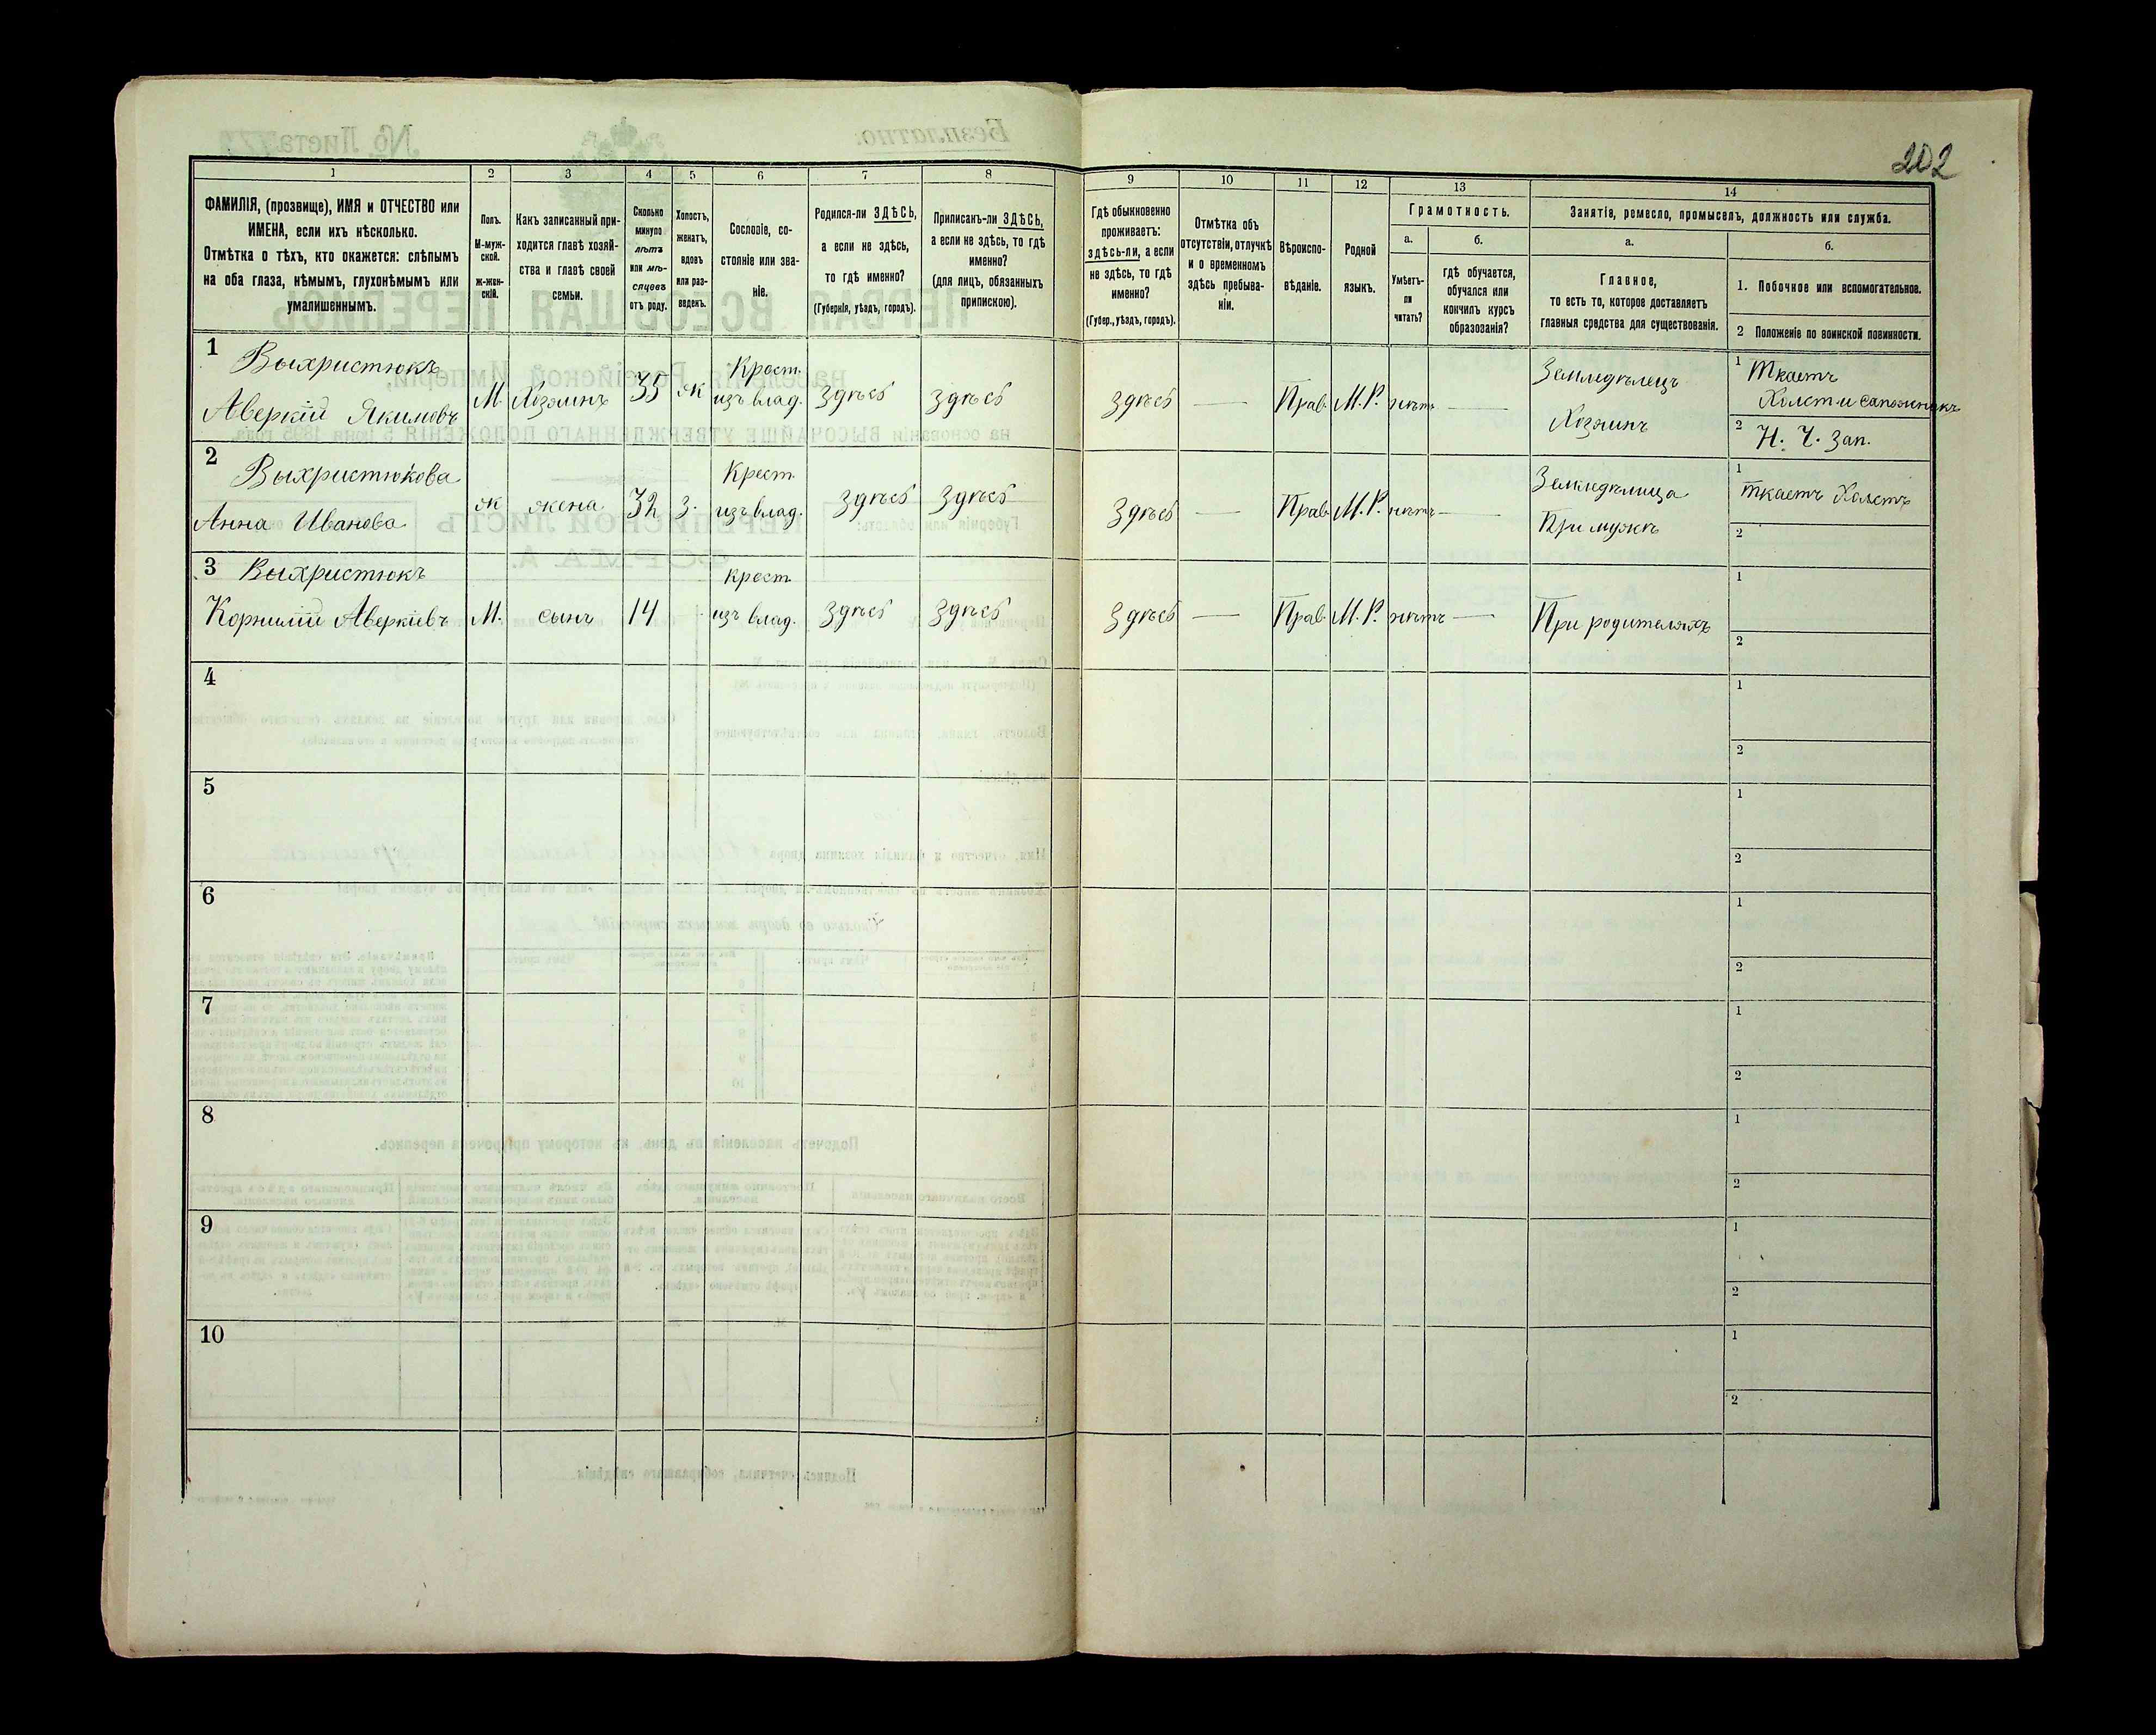 202
1 2 3 4 5 6 7 8 9 10 11 12 13 14
ФАМИЛІЯ, (прозвище), ИМЯ и ОТЧЕСТВО или
ИМЕНА, если ихъ нѣсколько.
Отмѣтка о тѣхъ, кто окажется: слѣпымъ
на оба глаза, нѣмымъ, глухонѣмымъ или
умалишеннымъ.
Полъ.
М-муж-
ской.
ж-жен-
скій.
Какъ записанный при-
ходится главѣ хозяй-
ства и главѣ своей
семьи.
Сколько
минуло
лѣтъ
или мѣ-
сяцевъ
отъ роду.
Холостъ,
женатъ,
вдовъ
или раз-
веденъ.
Сословіе, со-
стояніе или зва-
ніе.
Родился-ли ЗДѢСЬ,
а если не здѣсь,
то гдѣ именно?
(Губернія, уѣздъ, городъ).
Приписанъ-ли ЗДѢСЬ,
а если не здѣсь, то гдѣ
именно?
(для лицъ, обязанныхъ
припискою).
Гдѣ обыкновенно
проживаетъ:
здѣсь-ли, а если
не здѣсь, то гдѣ
именно?
(Губер., уѣздъ, городъ).
Отмѣтка объ
отсутствіи, отлучкѣ
и о временномъ
здѣсь пребыва-
ніи.
Вѣроиспо-
вѣданіе.
Родной
языкъ.
Грамотность.
а.
Умѣетъ-
ли
читать?
б.
гдѣ обучается,
обучался или
кончилъ курсъ
образозанія?
Занятія, ремесло, промыселъ, должность или служба.
а.
Главное,
то есть то, которое доставляетъ
главныя средства для существованія.
б.
1. Побочное или вспомогательное.
2 Положеніе по воинской повинности.
1 Выхристюкъ
Аверкій Якимовъ
М. Хозяинъ 35 ж
Крест.
изъ влад.
Здѣсь Здѣсь Здѣсь — Прав. М.Р. нѣтъ —
Земледѣлецъ
Хозяинъ
1 Ткаетъ
Холст. и сапожникъ
2 Н. Ч. Зап.
2 Выхристюкова
Анна Иванова
ж жена 32 З.
Крест.
изъ влад.
Здѣсь Здѣсь Здѣсь — Прав. М.Р. нѣтъ —
Земледѣлица
При мужѣ
1 ткаетъ Холстъ
2
3 Выхристюкъ
Корнилій Аверкіевъ
М. сынъ 14
крест.
изъ влад.
Здѣсь Здѣсь Здѣсь — Прав. М.Р. нѣтъ —
При родителяхъ
1
2
4
1
2
5
1
2
6
1
2
7
1
2
8
1
2
9
1
2
10
1
2